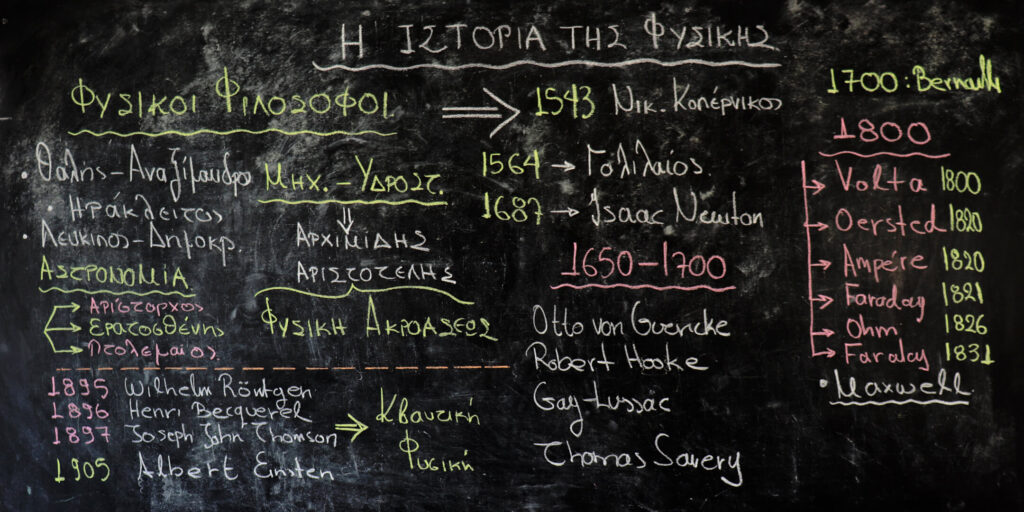 Η ΙΣΤΟΡΙΑ ΤΗΣ ΦΥΣΙΚΗΣ
ΦΥΣΙΚΟΙ ΦΙΛΟΣΟΦΟΙ
• Θαλής-Αναξίμανδρο
• Ηράκλειτος
• Λευκιπος-Δημοκρ.
ΑΣΤΡΟΝΟΜΙΑ
→ Αρίσταρχος
→ Ερατοσθένης
→ Πτολεμαίος
ΜΗΧ. - ΥΔΡΟΣΤ.
⇓
ΑΡΧΙΜΙΔΗΣ
ΑΡΙΣΤΟΤΕΛΗΣ
ΦΥΣΙΚΗ ΑΚΡΟΑΣΕΩΣ
⇒ 1543 Νικ. Κοπέρνικος
1564 → Γαλιλαίος
1687 → Isaac Newton
1650-1700
Otto von Guericke
Robert Hooke
Gay-Lussac
Thomas Savery
1700: Bernoulli
1800
→ Volta 1800
→ Oersted 1820
→ Ampére 1820
→ Faraday 1821
→ Ohm 1826
→ Faraday 1831
• Maxwell
1895 Wilhelm Röntgen
1896 Henri Becquerel
1897 Joseph John Thomson
1905 Albert Einsten
⇒ Κβαντική
Φυσική